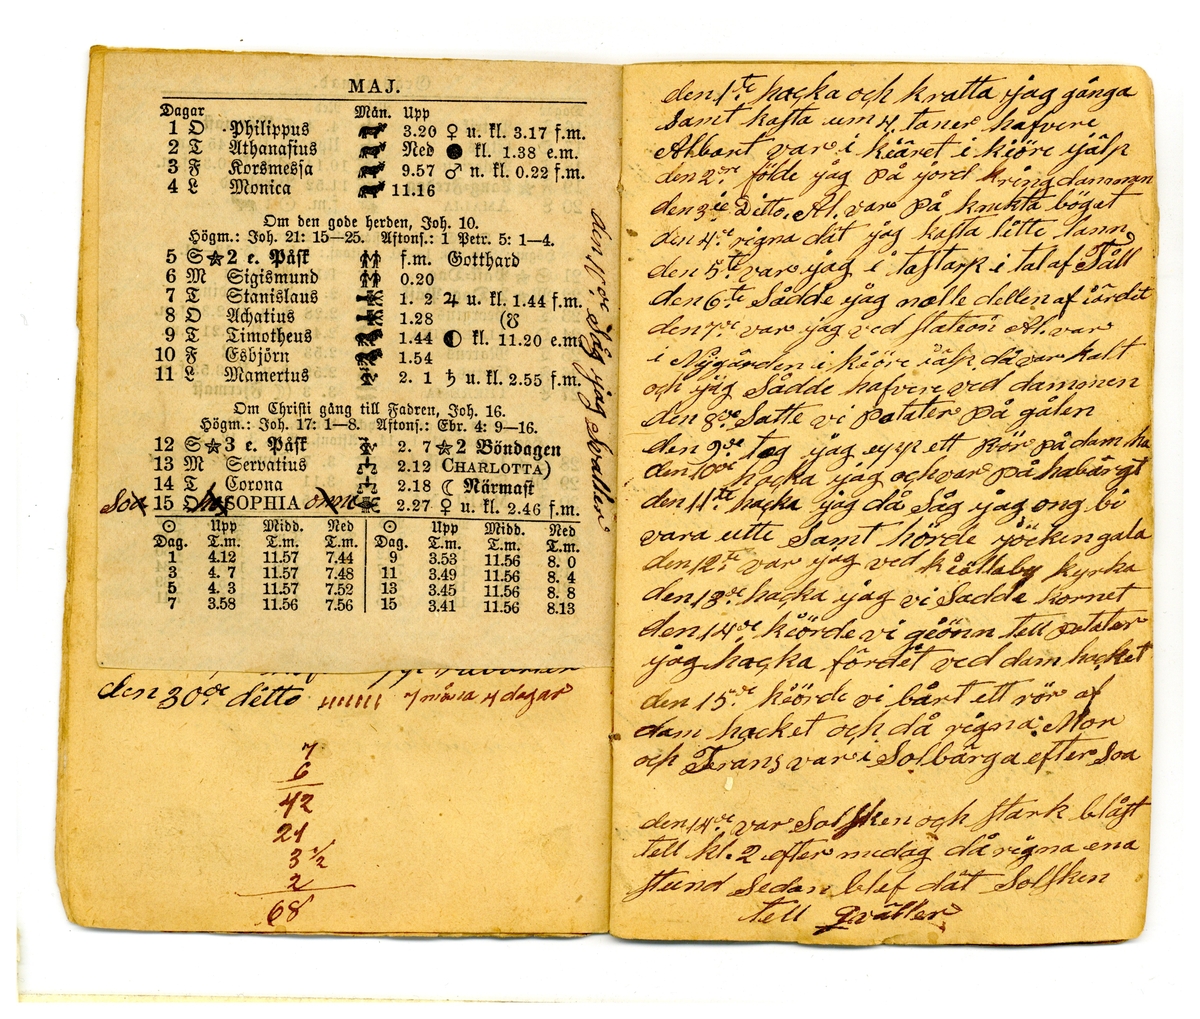 MAJ.
Dagar Mån. Upp
1 O Philippus 3.20 ♀ u. kl. 3.17 f.m.
2 T Athanasius Ned ● kl. 1.38 e.m.
3 F Korsmessa 9.57 ♂ n. kl. 0.22 f.m.
4 L Monica 11.16
Om den gode herden, Joh. 10.
Högm.: Joh. 21: 15—25. Aftons.: 1 Petr. 5: 1—4.
5 S ★ 2 e. Påsk f.m. Gotthard
6 M Sigismund 0.20
7 T Stanislaus 1. 2 ♃ u. kl. 1.44 f.m.
8 O Achatius 1.28 (☋
9 T Timotheus 1.44 ◐ kl. 11.20 e.m.
10 F Esbjörn 1.54
11 L Mamertus 2. 1 ♄ u. kl. 2.55 f.m.
Om Christi gång till Fadren, Joh. 16.
Högm.: Joh. 17: 1—8. Aftons.: Ebr. 4: 9—16.
12 S ★ 3 e. Påsk 2. 7 ★ 2 Böndagen
13 M Servatius 2.12 CHARLOTTA)
14 T Corona 2.18 ☾ Närmast
15 O SOPHIA 2.27 ♀ u. kl. 2.46 f.m.
☉ Upp Midd. Ned ☉ Upp Midd. Ned
Dag. T.m. T.m. T.m. Dag. T.m. T.m. T.m.
1 4.12 11.57 7.44 9 3.53 11.56 8. 0
3 4. 7 11.57 7.48 11 3.49 11.56 8. 4
5 4. 3 11.57 7.52 13 3.45 11.56 8. 8
7 3.58 11.56 7.56 15 3.41 11.56 8.13
den 11 de Såg jag Svallen
den 30 de ditto 7 måla 4 dagar
7
6
42
21
3 1/2
2
68
den 1 te hacka och kratta jag gånga
samt kasta um 4 taner hafvere
Albart var i kiäret i kiöre ijälp
den 2 re földe jag på jord kring dammen
den 3 ie Ditto. Al. var på krukta böget
den 4 de rigna dät jag kasta litte lann
den 5 te var jag i taftark i tal af Tåll
den 6 te Sådde jag nolle dellen af iärdet
den 7 de var jag ved station Al. var
i Nygården i kiöre iälp då var kalt
och jag Sådde hafvere ved dammen
den 8 de Satte vi potater på gålen
den 9 de tog jag upp ett rör på dam ha
den 10 de hacka jag och var på habärgt
den 11 te hacka jag då Såg jag ong bi
vara utte Samt hörde jöckengala
den 12 te var jag ved kiällaby kyrka
den 13 de hacka jag vi Sådde kornet
den 14 de kiörde vi giönn tell potater
jag hacka fördet ved dam hacket
den 15 de kiörde vi bårt ett rör af
dam hacket och då rigna. Mor
och Frans var i Solbärga efter Soa
den 14 de var Solsken och stark blåst
tell kl. 2 efter medag då rigna ena
stund Sedan blef dät Solsken
tell Qväller